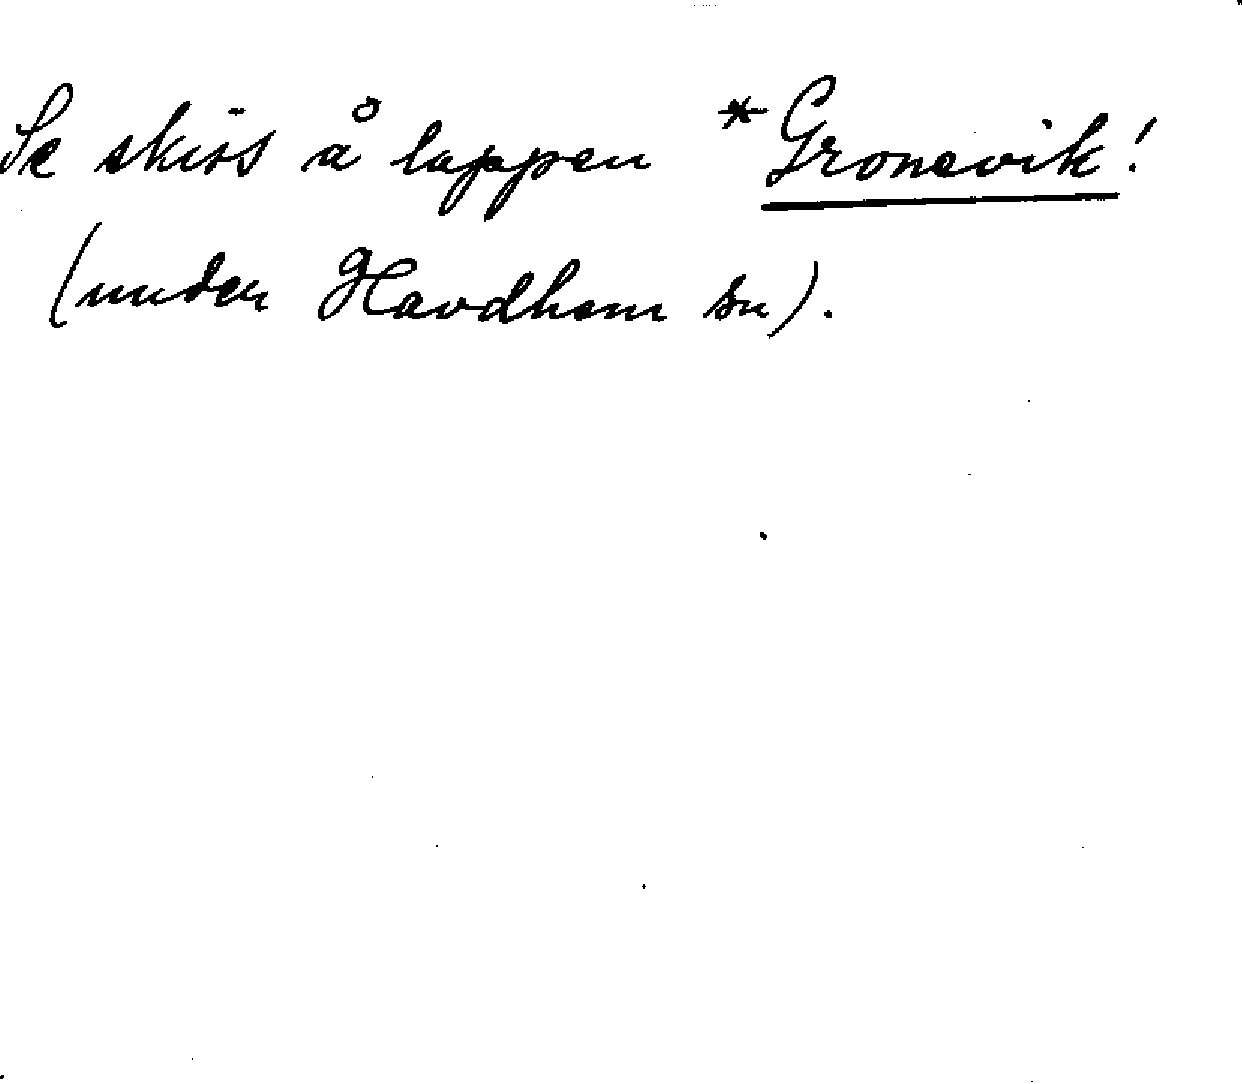 Se skiss å lappen *Gronevik!
(under Havdhem sn).